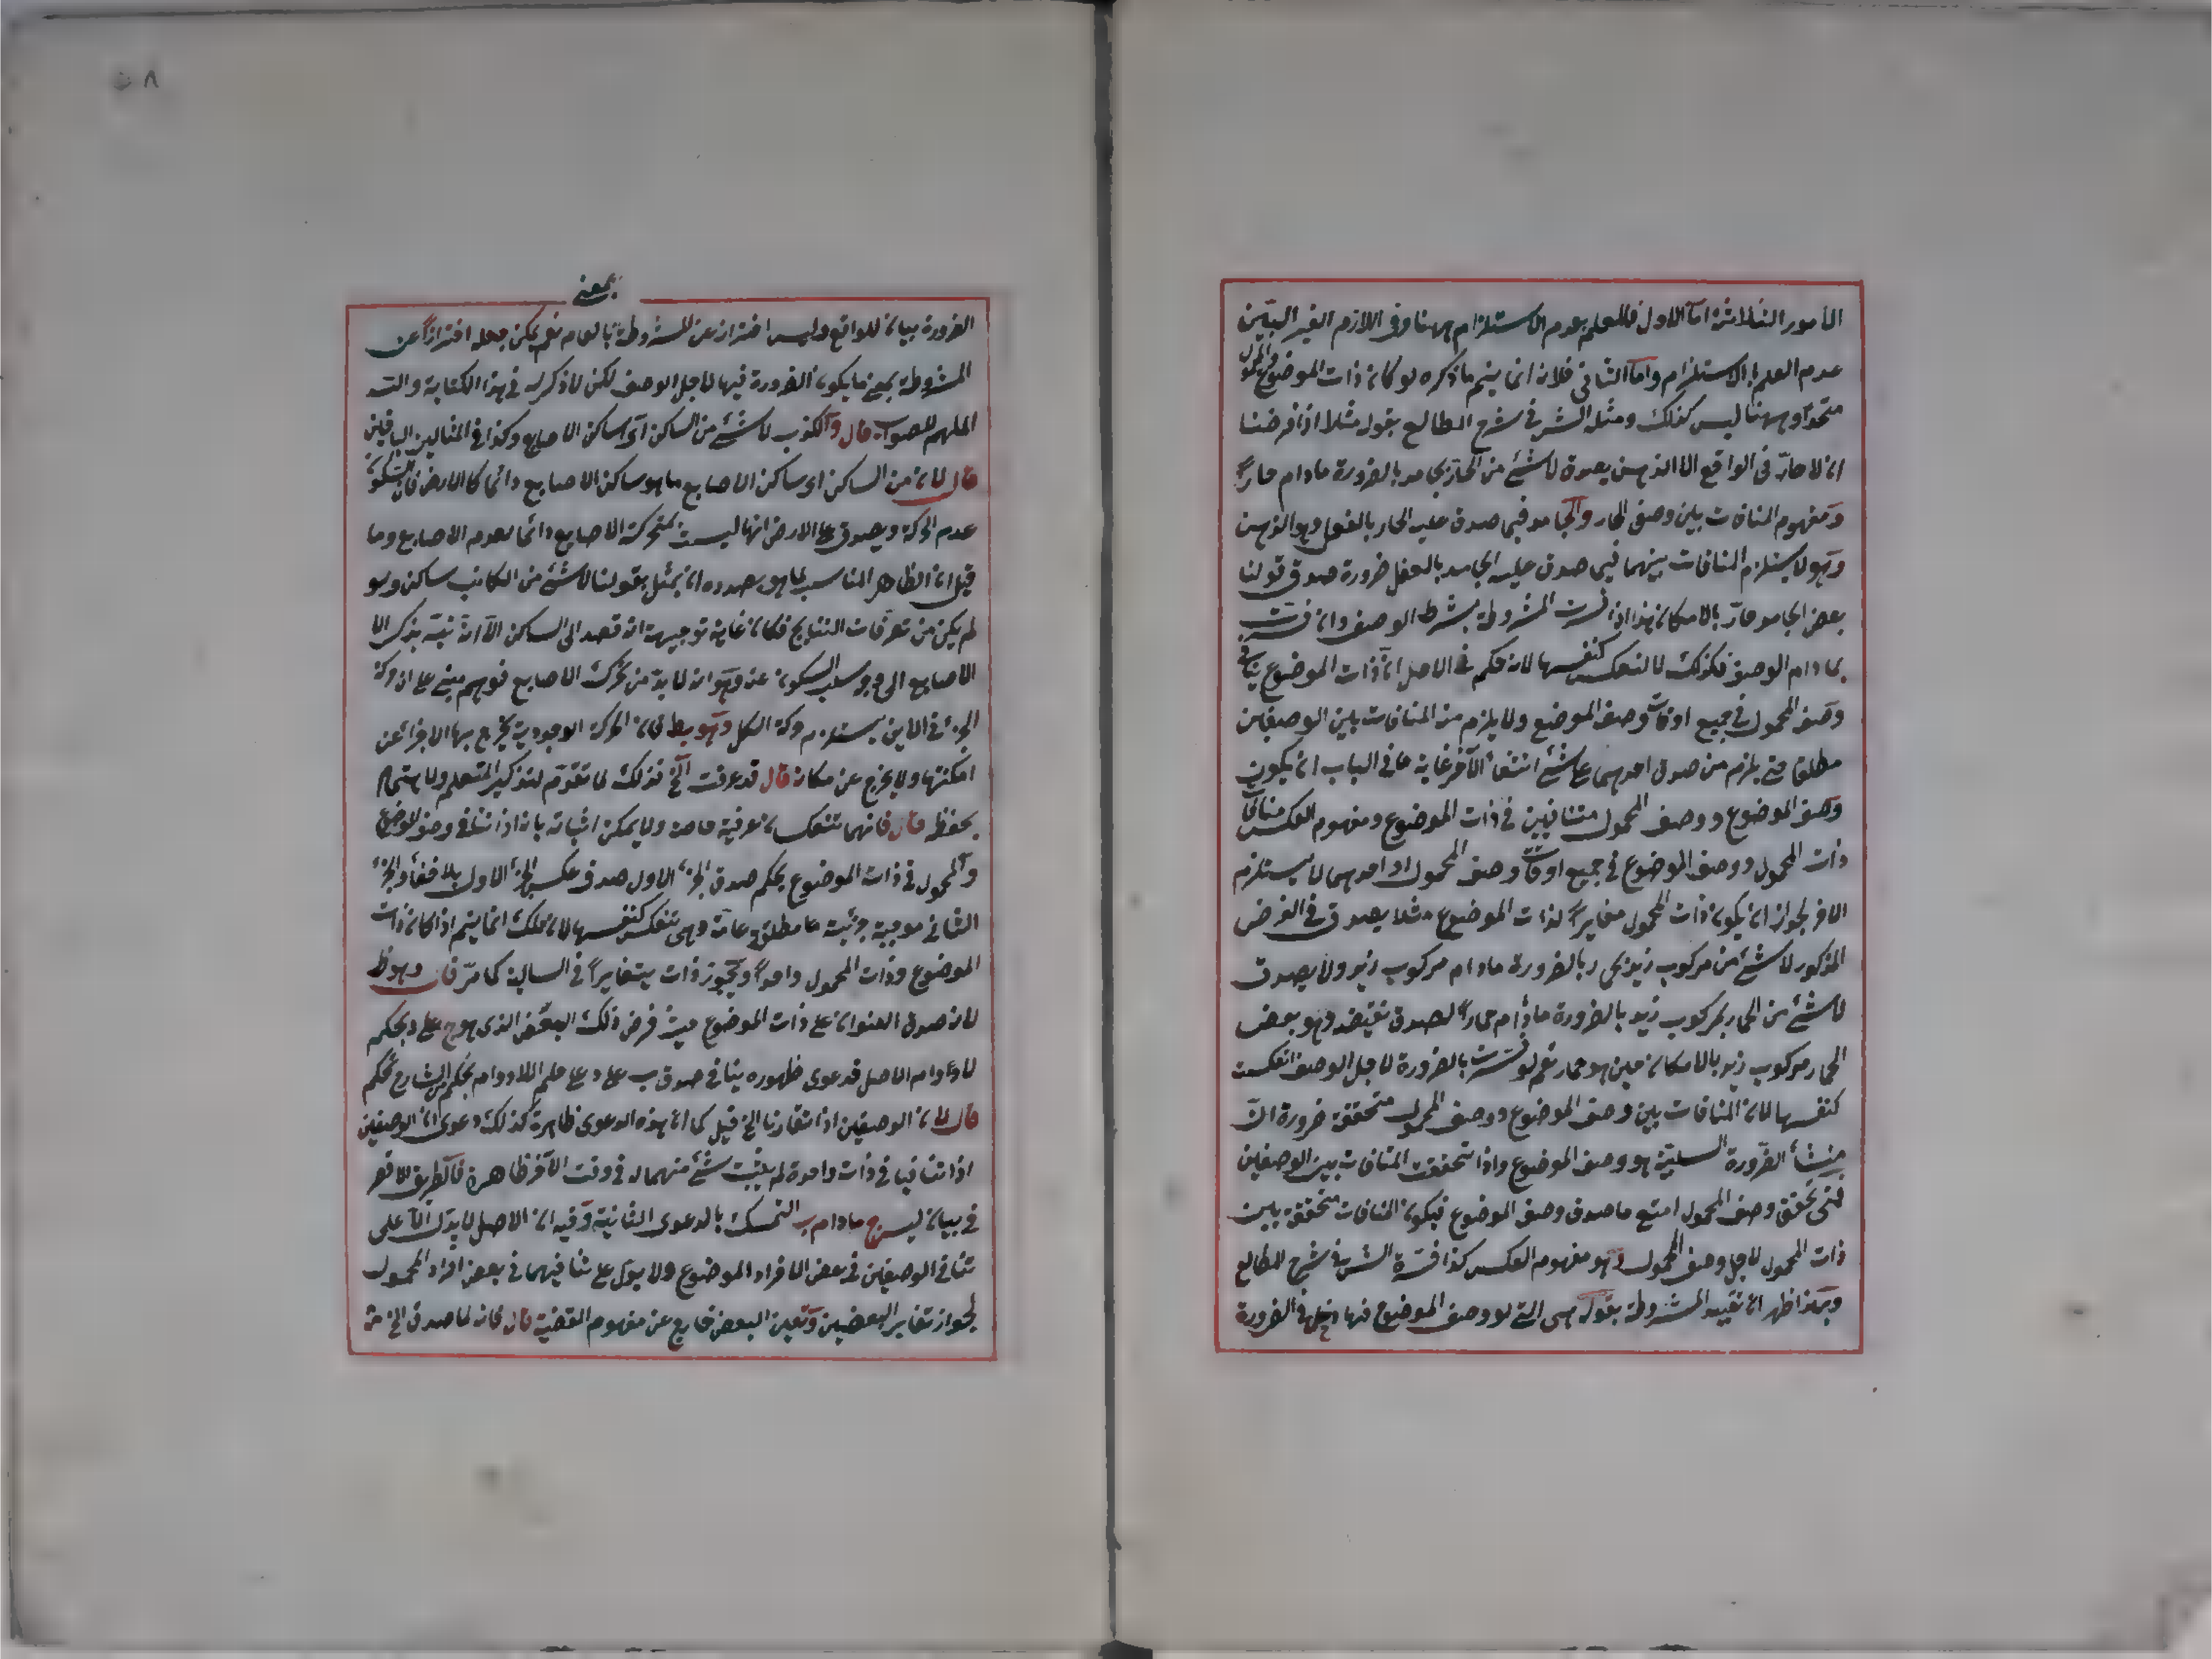 الأمور الثلاثة اما الاول فللعلم بعدم الاستلزام ههنا وفي اللازم الغير البين
عدم العلم بالاستلزام واما الثاني فلانه انما يتم ما ذكره لو كان ذات الموضوع والمحمول
متحدا وههنا ليس كذلك ومثله الشر في شرح المطالع بقوله مثلا اذا فرضنا
ان لا حار في الواقع الا الدهن يصدق لا شئ من الحار بجامد بالضرورة ما دام حارا
ومفهوم المنافات بين وصفي الحار والجامد فيما صدق عليه الحار بالفعل وهو الدهن
وهو لا يستلزم المنافات بينهما فيما صدق عليه الجامد بالفعل ضرورة صدق قولنا
بعض الجامد حار بالامكان هذا اذا فسرت المشروطة بشرط الوصف وان فسرت
بما دام الوصف فكذلك لا تنعكس كنفسها لانه حكم في الاصل ان ذات الموضوع ينافي
وصف المحمول في جميع اوقات وصف الموضع ولا يلزم منه المنافات بين الوصفين
مطلقا حتى يلزم من صدق احدهما على شئ انتفاء الآخر غاية ما في الباب ان يكون
وصف الموضوع ووصف المحمول متنافيين في ذات الموضوع ومفهوم العكس منافاة
ذات المحمول ووصف الموضوع في جميع اوقات وصف المحمول واحدهما لا يستلزم
الآخر لجواز ان يكون ذات المحمول مغايرا لذات الموضوع مثلا يصدق في الفرض
المذكور لا شئ من مركوب زيد بحمار بالضرورة ما دام مركوب زيد ولا يصدق
لا شئ من الحمار بمركوب زيد بالضرورة ما دام حمارا لصدق نقيضه وهو بعض
الحمار مركوب زيد بالامكان حين هو حمار نعم لو فسرت بالضرورة لاجل الوصف انعكست
كنفسها لان المنافات بين وصف الموضوع ووصف المحمول متحققة ضرورة ان
منشأ الضرورة السلبية هو وصف الموضوع واذا تحققت المنافات بين الوصفين
فمتى تحقق وصف المحمول امتنع ما صدق وصف الموضوع فيكون المنافات متحققة بين
ذات المحمول لاجل وصف المحمول وهو مفهوم العكس كذا قرره الشر في شرح المطالع
وبهذا ظهر ان تقييد المشروطة بقوله هي التي لوصف الموضوع فيها دخل في الضرورة
بمعنى
الضرورة بيان للواقع وليس احترازا عن المشروطة بالعام نعم يمكن جعله احترازا عن
المشروطة بمعنى ما يكون الضرورة فيها لاجل الوصف لكن لا ذكر له في هذا الكتابة والله
الملهم للصواب قال والكذب لا شئ من الساكن اي ساكن الاصابع وكذا في المثالين الباقيين
قال لان من الساكن اي ساكن الاصابع ما هو ساكن الاصابع دائما كالارض فان السكون
عدم الحركة ويصدق على الارض انها ليست بمتحركة الاصابع دائما لعدم الاصابع وما
قيل ان الظاهر المناسب لما هو بصدده ان يمثل بقولنا لا شئ من الكاتب ساكن ولو
لم يكن من تعرفات النتايج فكان غاية توجيهه انه قصد الى الساكن الا انه نبه بذكر الا
الاصابع الى وجه سلب السكون عنه وهو انه لا بد من تحرك الاصابع فوهم مبني على ان حركة
الجزء في الاين يستلزم حركة الكل وهو بط لان الحركة الوجودية يخرج بها الاجزاء عن
امكنتها ولا يخرج عن مكانه قال قد عرفت الخ فذلك لما تقدم لتذكير المتعلم والاهتمام
بحفظه قال فانهما تنعكسان عرفية خاصة ولا يمكن اثباته بانه اذا تنافى وصف الموضوع
والمحمول في ذات الموضوع بحكم صدق الجزء الاول صدق عكس الجزء الاول بلا خفاء والجزء
الثاني موجبة جزئية عامة مطلقة عامة وهي تنعكس كنفسها لان ذلك انما يتم اذا كان ذات
الموضوع وذات المحمول واحدا ويجوز ذات يتغايرا في السالبة كما مر قال وهو ظ
لانه صدق العنوان على ذات الموضوع حيث فرض ذلك البعض الذي هو ج على د بحكم
لا دوام الاصل فدعوى ظهوره ينافي صدق ب على د على حكم اللادوام بحكم من الشارح تحكم
قال لان الوصفين اذا تقارنا الخ قيل كما ان هذه الدعوى ظاهرة كذلك دعوى ان الوصفين
اذا تنافيا في ذات واحدة لم يثبت شئ منهما له في وقت الآخر ظاهرة فالطريق الاقصر
في بيان ليس ج ما دام ب التمسك بالدعوى الثانية وفيه ان الاصل لا يدل الا على
تنافي الوصفين في بعض الافراد الموضوع ولا يدل على تنافيهما في بعض افراد المحمول
لجواز تغاير البعضين وتعين البعض خارج عن مفهوم القضية قال فانه لما صدق الخ